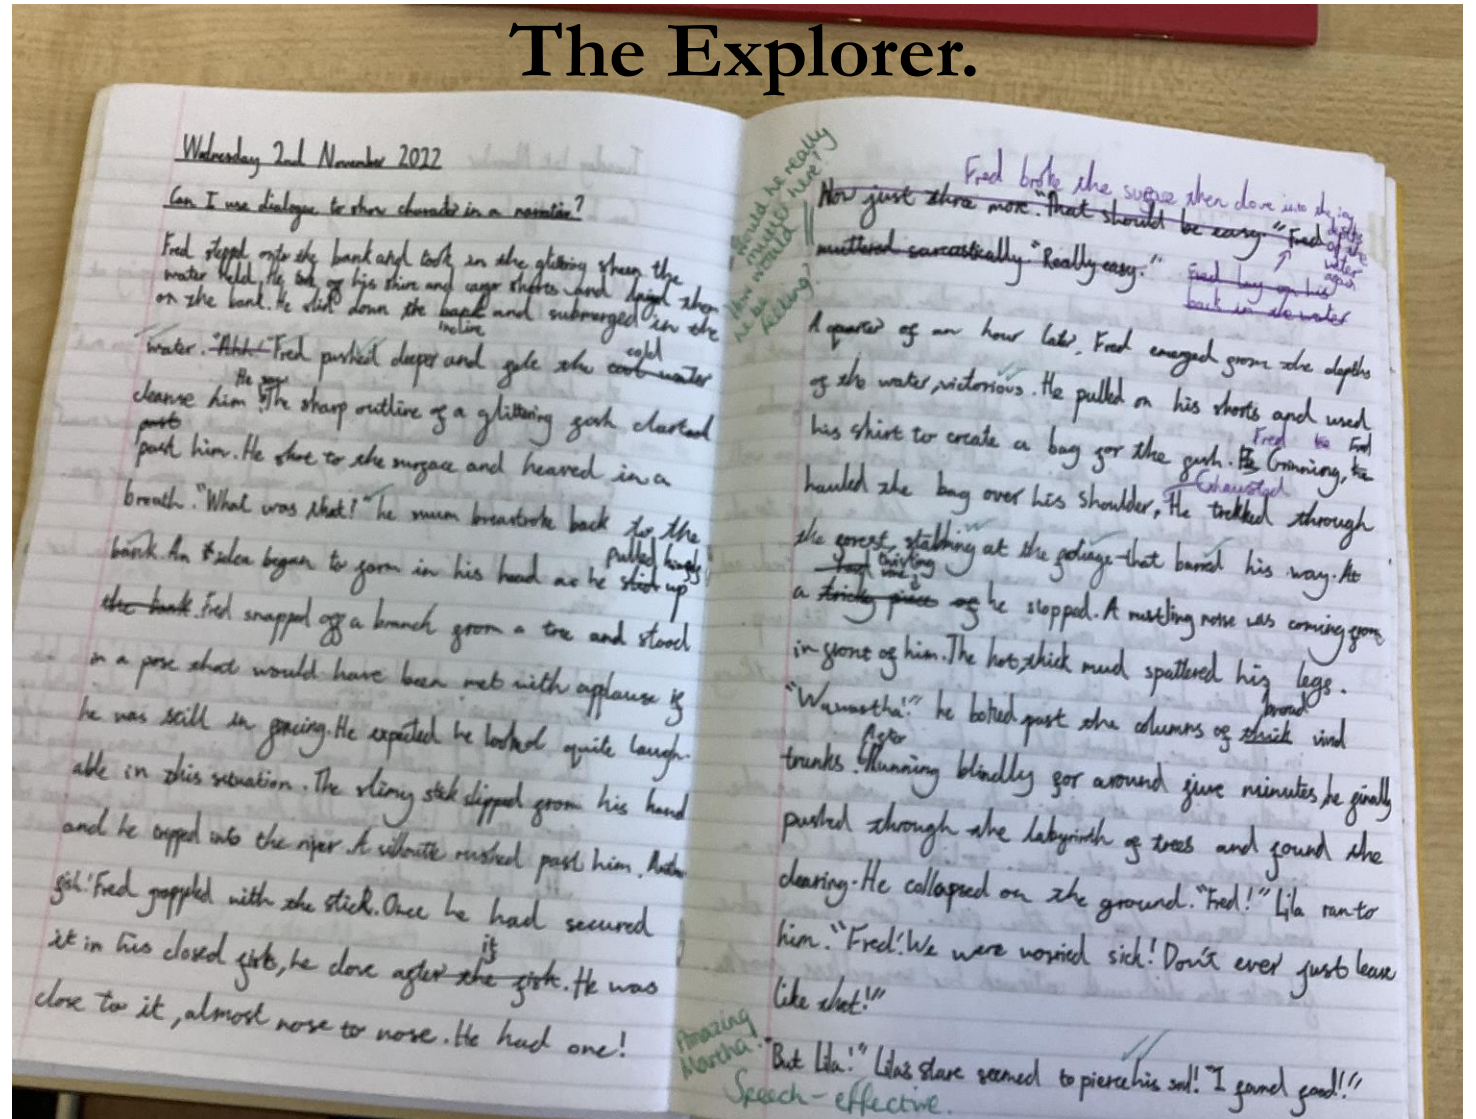 The Explorer.
Wednesday 2nd November 2022
Can I use dialogue to show character in a narrative?
Fred stepped onto the bank and took in the glittering sheen the
water held. He took off his shirt and cargo shorts and draped them
on the bank. He slid down the bank and submerged in the
incline
water. "Ahh!" Fred pushed deeper and felt the cool water
cold
cleanse him. The sharp outline of a glittering fish darted
He saw
past
past him. He shot to the surface and heaved in a
breath. "What was that!" he swum breastroke back to the
bank. An idea began to form in his head as he slid up
pulled himself
the bank. Fred snapped off a branch from a tree and stood
in a pose that would have been met with applause if
he was still in fencing. He expected he looked quite laugh-
able in this situation. The slimy stick slipped from his hand
and he into the river. A rushed past him. Another
fish! Fred grappled with the stick. Once he had secured
it in his closed fist, he dove after the fish. He was
it
close to it, almost nose to nose. He had one!
Would he really
mutter here?
How would
he be
feeling?
Fred broke the surface then dove into the icy
depths
of the
water
again
Now just three more. "That should be easy" Fred
muttered sarcastically. "Really easy."
Fred lay on his
back in the water
A quarter of an hour later, Fred emerged from the depths
of the water, victorious. He pulled on his shorts and used
his shirt to create a bag for the fish. He Grinning, he
Fred he Fred
hauled the bag over his shoulder, He trekked through
Exhausted
the forest, stabbing at the foliage that barred his way. At
a tricky piece of he stopped. A rustling noise was coming from
twisting
in front of him. The hot, thick mud spattered his legs.
"Waaaartha!" he bolted past the columns of thick vind
broad
trunks. Running blindly for around five minutes, he finally
After
pushed through the labyrinth of trees and found the
clearing. He collapsed on the ground. "Fred!" Lila ran to
him. "Fred! We were worried sick! Don't ever just leave
like that!"
"But Lila!" Lila's stare seemed to pierce his soul! "I found food!"
Amazing
Martha!
Speech - effective.